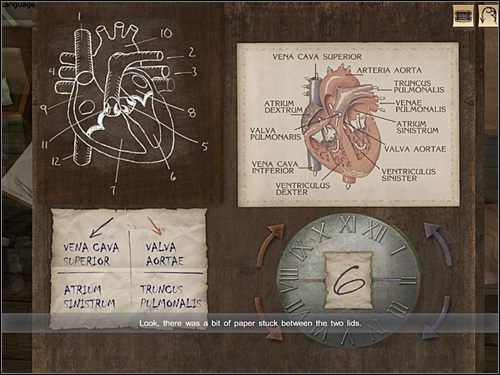 Language
1
10
2
3
4
9
8
11
5
12
7
6
VENA CAVA SUPERIOR
ARTERIA AORTA
TRUNCUS
PULMONALIS
ATRIUM
DEXTRUM
VENAE
PULMONALIS
ATRIUM
SINISTRUM
VALVA
PULMONARIS
VALVA AORTAE
VENA CAVA
INTFERIOR
VENTRICULUS
SINISTER
VENTRICULUS
DEXTER
VENA CAVA
SUPERIOR
VALVA
AORTAE
ATRIUM
SINISTRUM
TRUNCUS
PULMONALIS
XII
XI
X
IX
VIII
I
6
Look, there was a bit of paper stuck between the two lids.